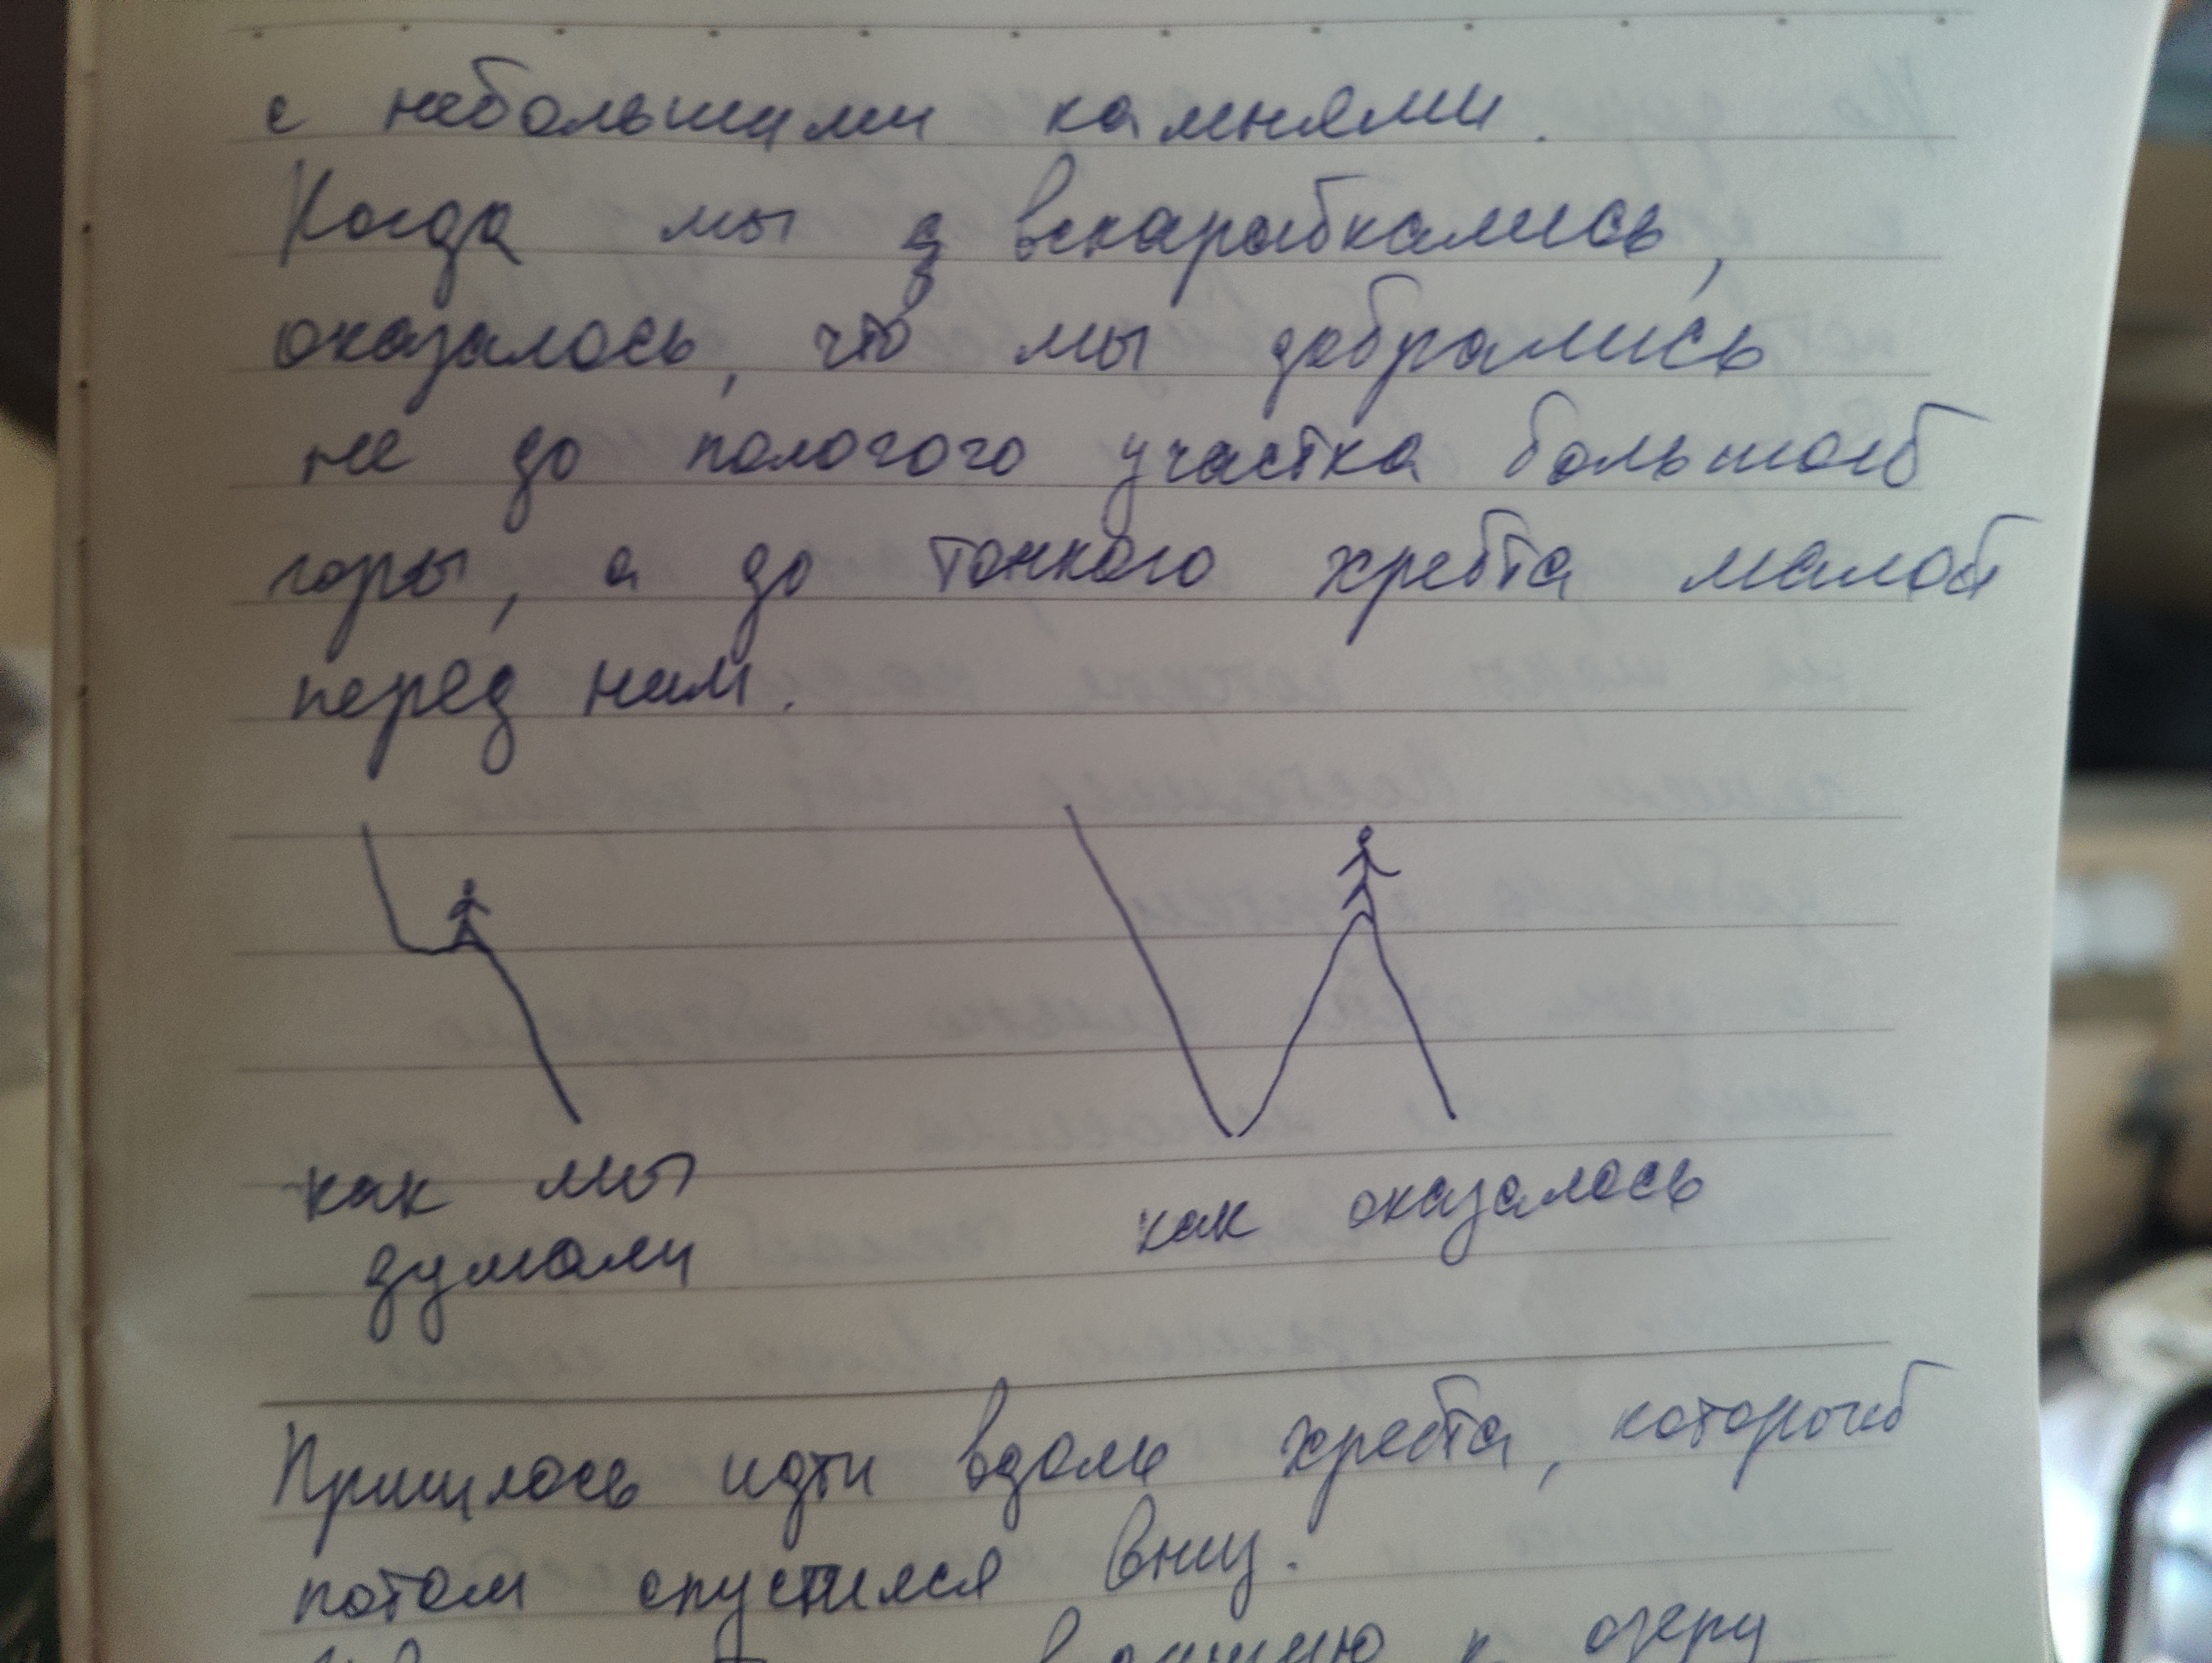 с небольшими камнями.
Когда мы вскарабкались,
оказалось, что мы добрались
не до пологого участка большой
горы, а до тонкого хребта малой
перед ним.
как мы
думали
как оказалось
Пришлось идти вдоль хребта, который
потом спустился вниз.
к озеру